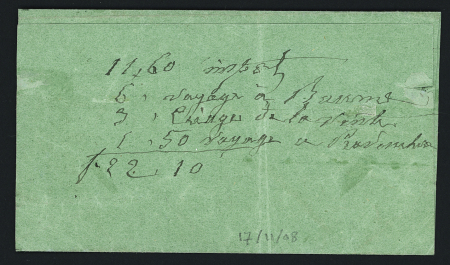 11,60 impot
6, voyage à Baume
3, Change de la vente
1,50 voyage a
f. 22,10
17/11/08